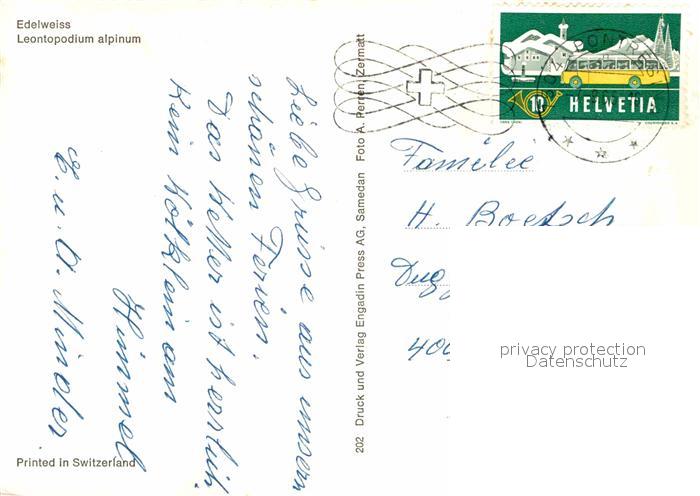 Edelweiss
Leontopodium alpinum
Liebe Grüsse aus unsern
schönen Ferien.
Das Wetter ist herrlich
Kein Wölklein am
Himmel
E. u. O. Minder
Printed in Switzerland
202 Druck und Verlag Engadin Press AG, Samedan Foto A. Perren, Zermatt
PONTRES
10 HELVETIA
Familie
H. Boetsch
Dug
400
privacy protection
Datenschutz